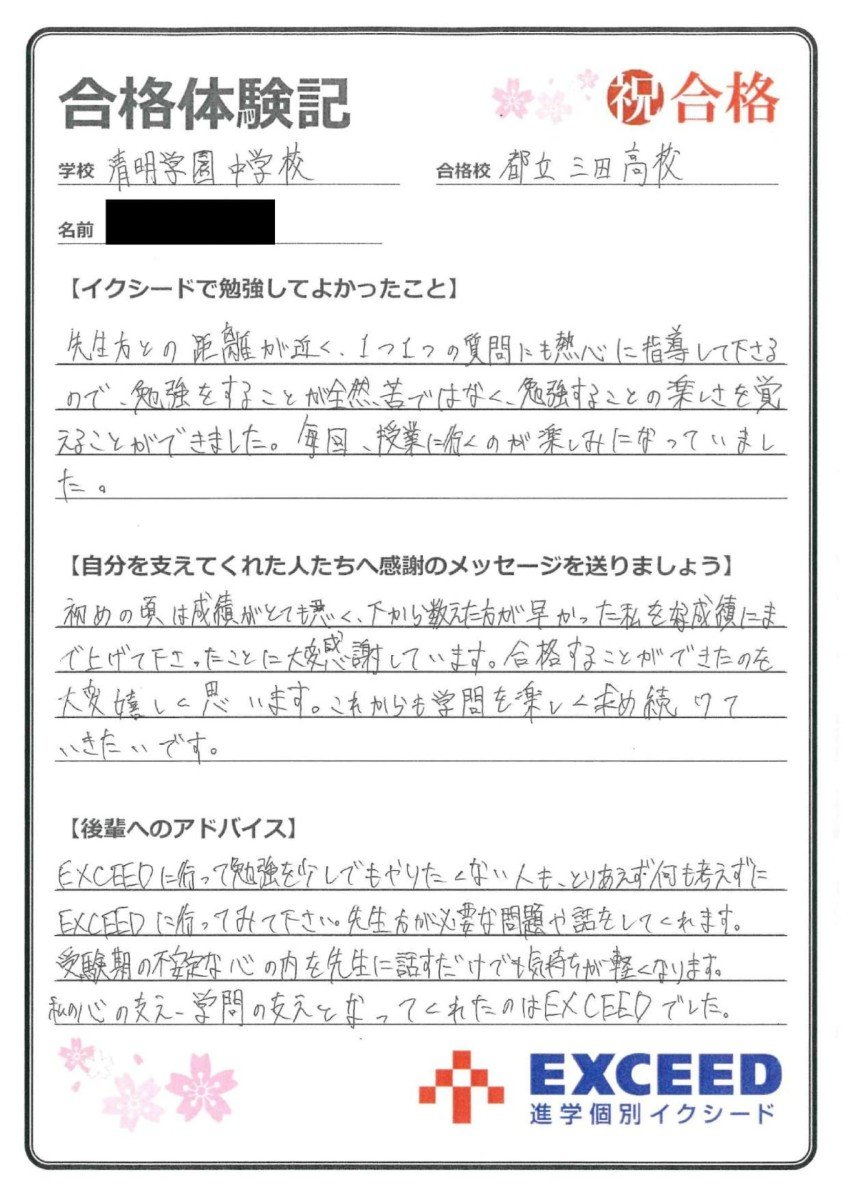 合格体験記
祝 合格
学校 清明学園中学校
合格校 都立三田高校
名前
【イクシードで勉強してよかったこと】
先生方との距離が近く、1つ1つの質問にも熱心に指導して下さる
ので、勉強をすることが全然、苦ではなく、勉強することの楽しさを覚
えることができました。毎回、授業に行くのが楽しみになっていまし
た。
【自分を支えてくれた人たちへ感謝のメッセージを送りましょう】
初めの頃は成績がとても悪く、下から数えた方が早かった私を成績にま
で上げて下さったことに大変感謝しています。合格することができたのを
大変嬉しく思います。これからも学問を楽しく求め続けて
いきたいです。
【後輩へのアドバイス】
EXCEEDに行って勉強を少しでもやりたくない人も、とりあえず何も考えずに
EXCEEDに行ってみて下さい。先生方が必要な問題や話をしてくれます。
受験期の不安定な心の内を先生に話すだけでも気持ちが軽くなります。
私の心の支え、学問の支えとなってくれたのはEXCEEDでした。
EXCEED
進学個別イクシード